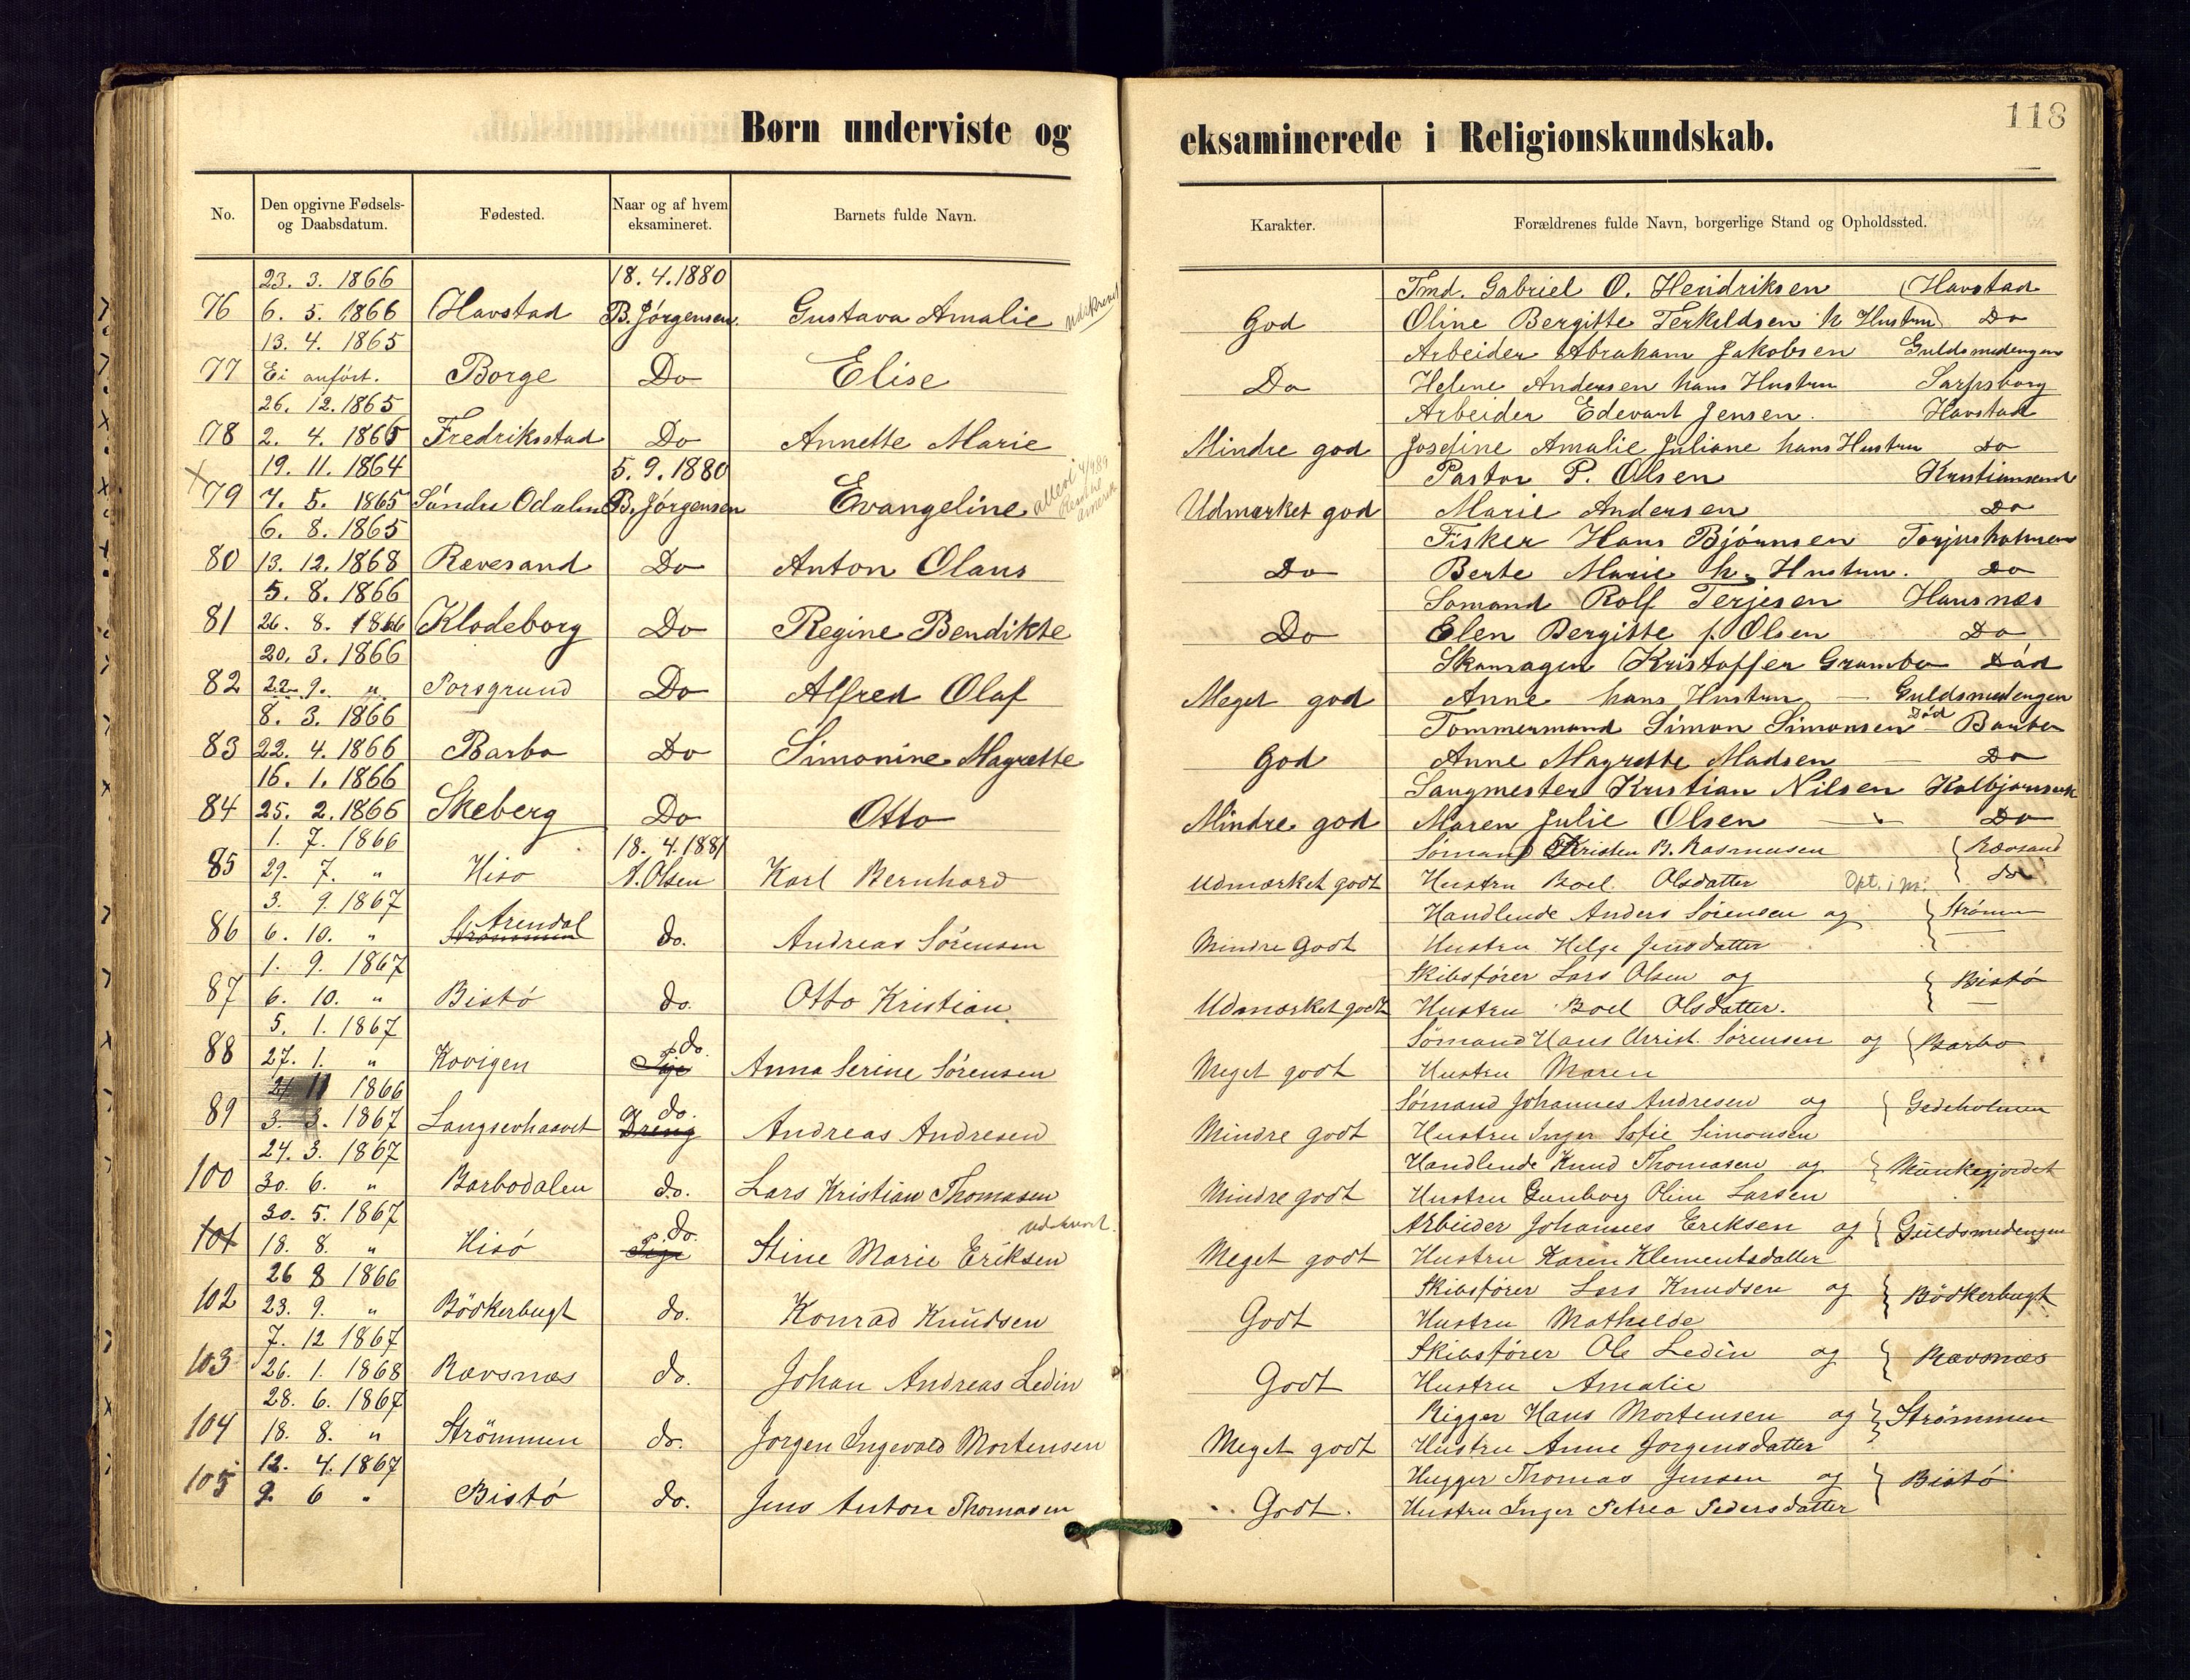 118
Børn underviste og eksaminerede i Religionskundskab.
No. Den opgivne Fødsels- og Daabsdatum. Fødested. Naar og af hvem eksamineret. Barnets fulde Navn. Karakter. Forældrenes fulde Navn, borgerlige Stand og Opholdssted.
23. 3. 1866 18. 4. 1880 Tmd. Gabriel O. Hendriksen Havstad
76 6. 5. 1866 Havstad B. Jørgensen Gustava Amalie God Oline Bergitte Terkildsen h Hustru Do
13. 4. 1865 Arbeider Abraham Jakobsen Guldsmedengen
77 Ei anført. Borge Do Elise Do Helene Andersen hans Hustru Sarpsborg
26. 12. 1865 Arbeider Edevart Jensen. Havstad
78 2. 4. 1865 Fredriksstad Do Annette Marie Mindre god Josefine Amalie Juliane hans Hustru Do
19. 11. 1864 5. 9. 1880 Pastor P. Olsen Kristiansand
79 7. 5. 1865 Søndre Odalen B. Jørgensen Evangeline Udmærket god Marie Andersen Do
6. 8. 1865 Fisker Hans Bjørnsen Torjusholmen
80 13. 12. 1868 Revesand Do Anton Olaus Do Berte Marie h. Hustru. Do
5. 8. 1866 Sømand Rolf Terjesen Hausnæs
81 26. 8. 1866 Klodeborg Do Regine Bendikte Do Elen Bergitte f. Olsen Do
20. 3. 1866 Skomager Kristoffer Grambo Død
82 22. 9. " Porsgrund Do Alfred Olaf Meget god Anne hans Hustru — Guldsmedengen
8. 3. 1866 Tømmermand Simon Simonsen Død Barbo
83 22. 4. 1866 Barbo Do Simonine Magrette God Anne Magrette Madsen — Do
16. 1. 1866 Saugmester Kristian Nilsen Kolbjørnsvik
84 25. 2. 1866 Skeberg Do Otto Mindre god Maren Julie Olsen — " Do
1. 7. 1866 18. 4. 1881 Sømand Kristen B. Rasmusen Rævsand
85 29. 7. " Hisø A. Olsen Karl Bernhard Udmærket godt Hustru Boel Olsdatter do
3. 9. 1867 Arendal Handlende Anders Sørensen og Strømm
86 6. 10. " Strømmen do. Andreas Sørensen Mindre Godt Hustru Helge Jensdatter —
1. 9. 1867 Skibsfører Lars Olsen og Bistö
87 6. 10. " Bistö do. Otto Kristian Udmærket godt Hustru Boel Olsdatter. —
5. 1. 1867 do. Sømand Hans Christ. Sørensen og Barbo
88 27. 1. " Kovigen Pige Anna Serine Sørensen Meget godt Hustru Maren
21 11 1866 do. Sømand Johannes Andresen og Gedeholmen
89 3. 3. 1867 Langsevhaavet Dreng Andreas Andresen Mindre godt Hustru Inger Sofie Simonsen
24. 3. 1867 Handlende Knud Thomasen og Munkegjordet
100 30. 6. " Barbodalen do. Lars Kristian Thomasen Mindre godt Hustru Gunborg Oline Larsen
30. 5. 1867 do. Arbeider Johannes Eriksen og Guldsmedengen
101 18. 8. " Hisö Pige Stine Marie Eriksen Meget godt Hustru Karen Klementsdatter
26 8 1866 Skibsfører Lars Knudsen og Bödkerbugt
102 23. 9. " Bödkerbugt do. Konrad Knudsen Godt Hustru Mathilde
7. 12 1867 Skibsfører Ole Ledin og Rævsnæs
103 26. 1. 1868 Rævsnæs do. Johan Andreas Ledin Godt Hustru Amalie
28. 6. 1867 Rigger Hans Mortensen og Strömmen
104 18. 8. " Strömmen do. Jørgen Ingevald Mortensen Meget godt Hustru Anne Jørgensdatter
12. 4. 1867 Hugger Thomas Jensen og Bistö
105 9. 6 " Bistö do. Jens Anton Thomasen Godt. Hustru Inger Petrea Pedersdatter